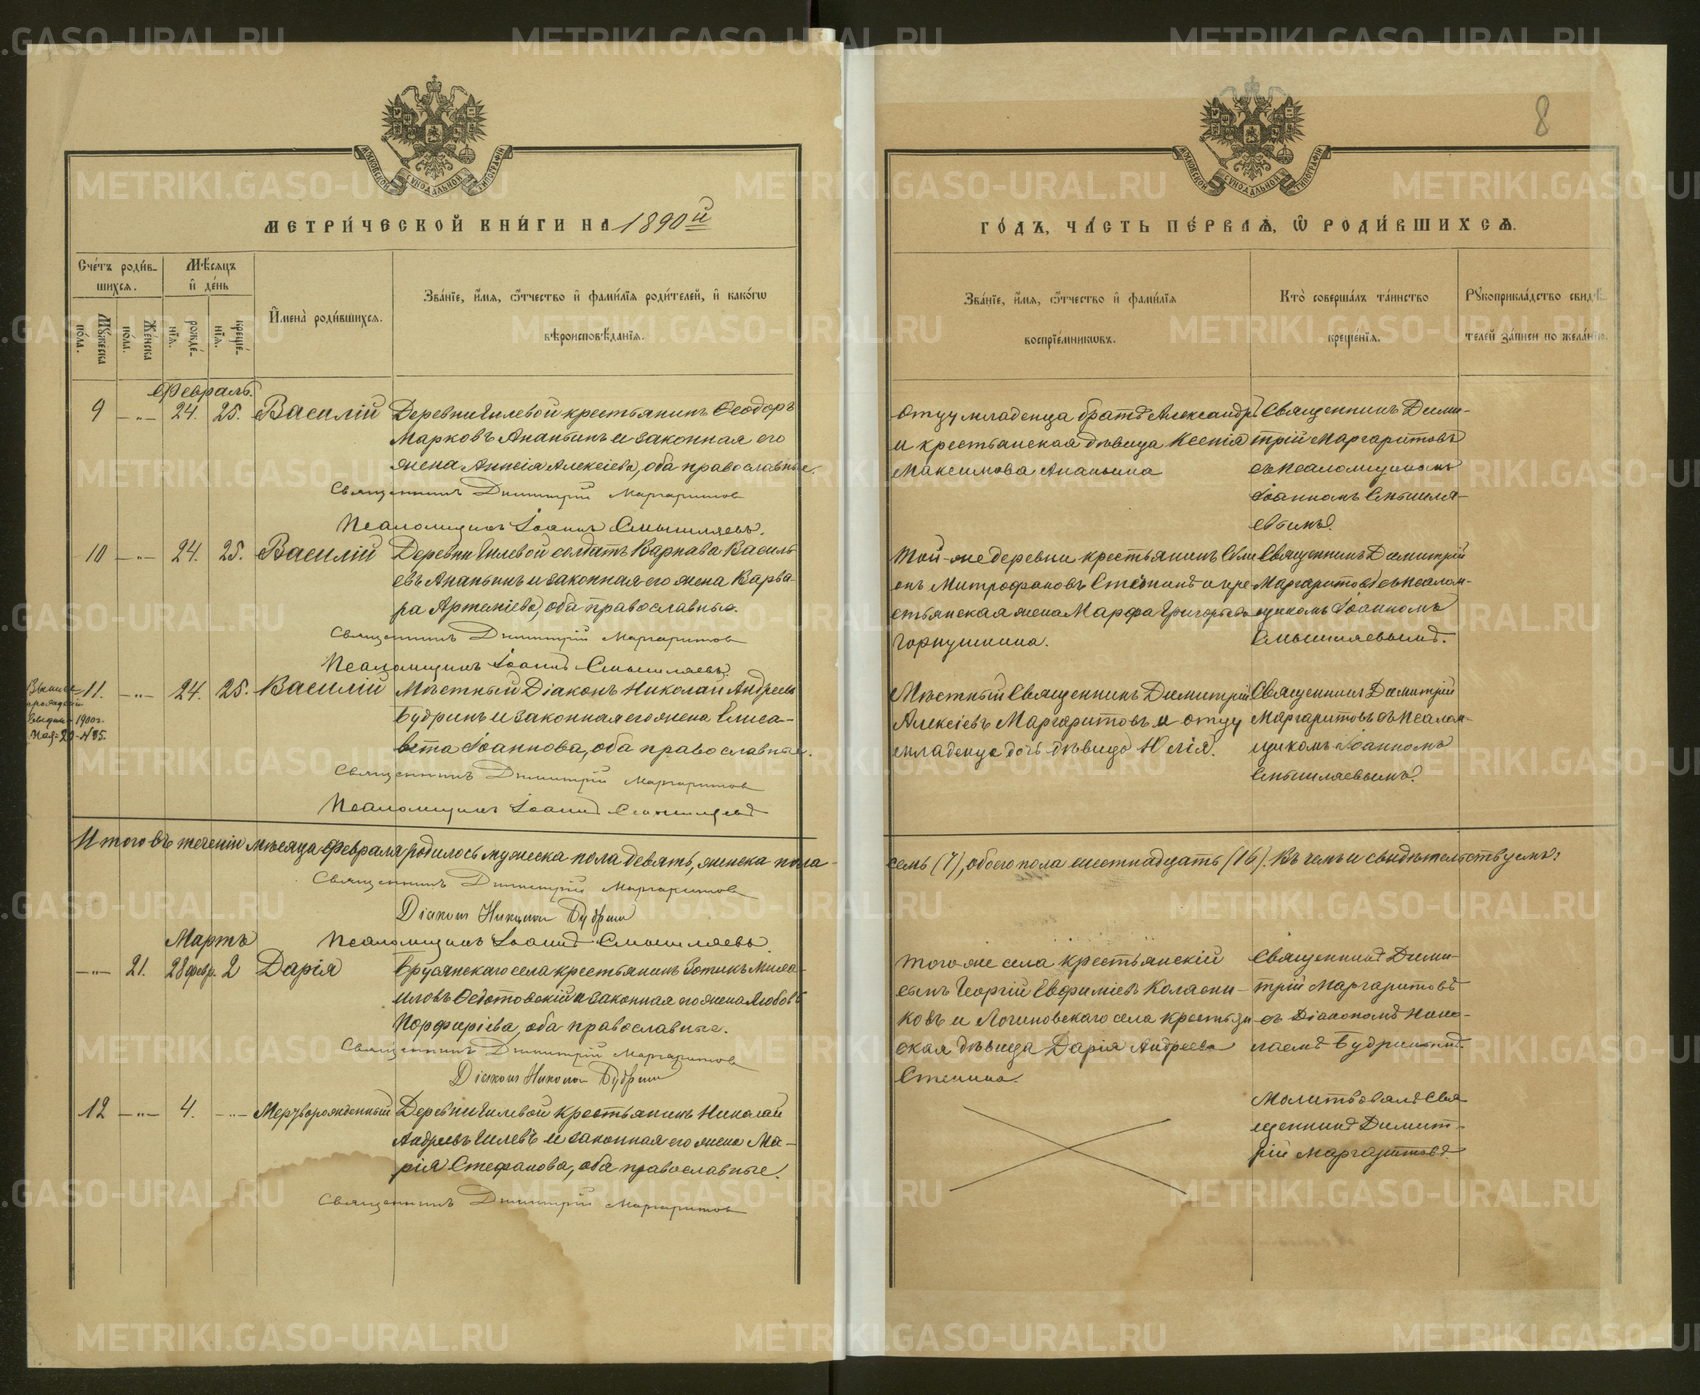 8
МЕТРИ́ЧЕСКОЙ КНИ́ГИ НА 1890й
ГО́ДЪ, ЧА́СТЬ ПЕ́РВАѦ, Ѽ РОДИ́ВШИХСѦ.
Сче́тъ роди́в-
шихся.
Мѣ́сяцъ
и҆ де́нь
Мꙋ́жеска
по́ла.
Же́нска
по́ла.
рожде́-
нїѧ.
креще́-
нїѧ.
И҆мена̀ роди́вшихсѧ.
Зва́нїе, и҆́мѧ, ѻ҆́тчество и҆ фами́лїѧ роди́телей, и҆ како́гѡ
вѣроисповѣ́данїѧ.
Зва́нїе, и҆́мѧ, ѻ҆́тчество и҆ фами́лїѧ
воспрїе́мникѡвъ.
Кто̀ соверша́лъ та́инство
креще́нїѧ.
Рꙋкоприкла́дство свидѣ́-
телей за́писи по жела́нїю.
Февраль.
9 —„— 24. 25. Василій
Деревни Гилевой крестьянинъ Ѳеодоръ
Марковъ Ананьинъ и законная его
жена Анисія Алексіева, оба православные.
Священникъ Димитрій Маргаритов
Псаломщикъ Іоаннъ Смышляевъ.
Отцу младенца братъ Александръ
и крестьянская дѣвица Ксенія
Максимова Ананьина
Священникъ Дими-
трій Маргаритовъ
съ псаломщикомъ
Іоанномъ Смышля-
евымъ.
10 —„— 24. 25. Василій
Деревни Гилевой солдатъ Варнава Василь-
евъ Ананьинъ и законная его жена Варва-
ра Артеміева, оба православные.
Священникъ Димитрій Маргаритов
Псаломщикъ Іоаннъ Смышляевъ.
Той-же деревни крестьянинъ Сим
онъ Митрофановъ Стенинъ и кре-
стьянская жена Марфа Григорьева
Горкушина.
Священникъ Димитрій
Маргаритовъ съ псалом-
щикомъ Іоанномъ
Смышляевымъ.
1900 г.
11. —„— 24. 25. Василій
Мѣстный Діаконъ Николай Андреев
Будринъ и законная его жена Елиса-
вета Іоаннова, оба православные.
Священникъ Димитрій Маргаритов
Псаломщикъ Іоаннъ Смышляевъ
Мѣстный Священникъ Димитрій
Алексіевъ Маргаритовъ и отцу
младенца дочь дѣвица Юлія.
Священникъ Димитрій
Маргаритовъ съ псалом-
щикомъ Іоанномъ
Смышляевымъ.
Итого въ теченіи мѣсяца Февраля родилось мужеска пола девять, женска пола-
семь (7), обоего пола шестнадцать (16). Въ чемъ и свидѣтельствуемъ:
Священникъ Димитрій Маргаритов
Діаконъ Николай Будрин
Псаломщикъ Іоаннъ Смышляевъ.
Мартъ
—„— 21. 28 февр. 2 Дарія
села крестьянинъ Зотикъ Миха-
иловъ Ѳедотовскій и законная его жена Любовь
Порфиріева, оба православные.
Священникъ Димитрій Маргаритов
Діаконъ Николай Будрин
Того же села крестьянскій
сынъ Георгій Евфиміевъ Колясни-
ковъ и Логиновскаго села крестьян-
ская дѣвица Дарія Андреева
Стенина.
Священникъ Дими-
трій Маргаритовъ
съ Діакономъ Нико-
лаемъ Будринымъ.
12 —„— 4. —„— Мертворожденный
Деревни Гилевой крестьянинъ Николай
Андреевъ Гилевъ и законная его жена Ма-
рія Стефанова, оба православные.
Священникъ Димитрій Маргаритов
Молитвовалъ Свя-
щенникъ Димит-
рій Маргаритовъ.